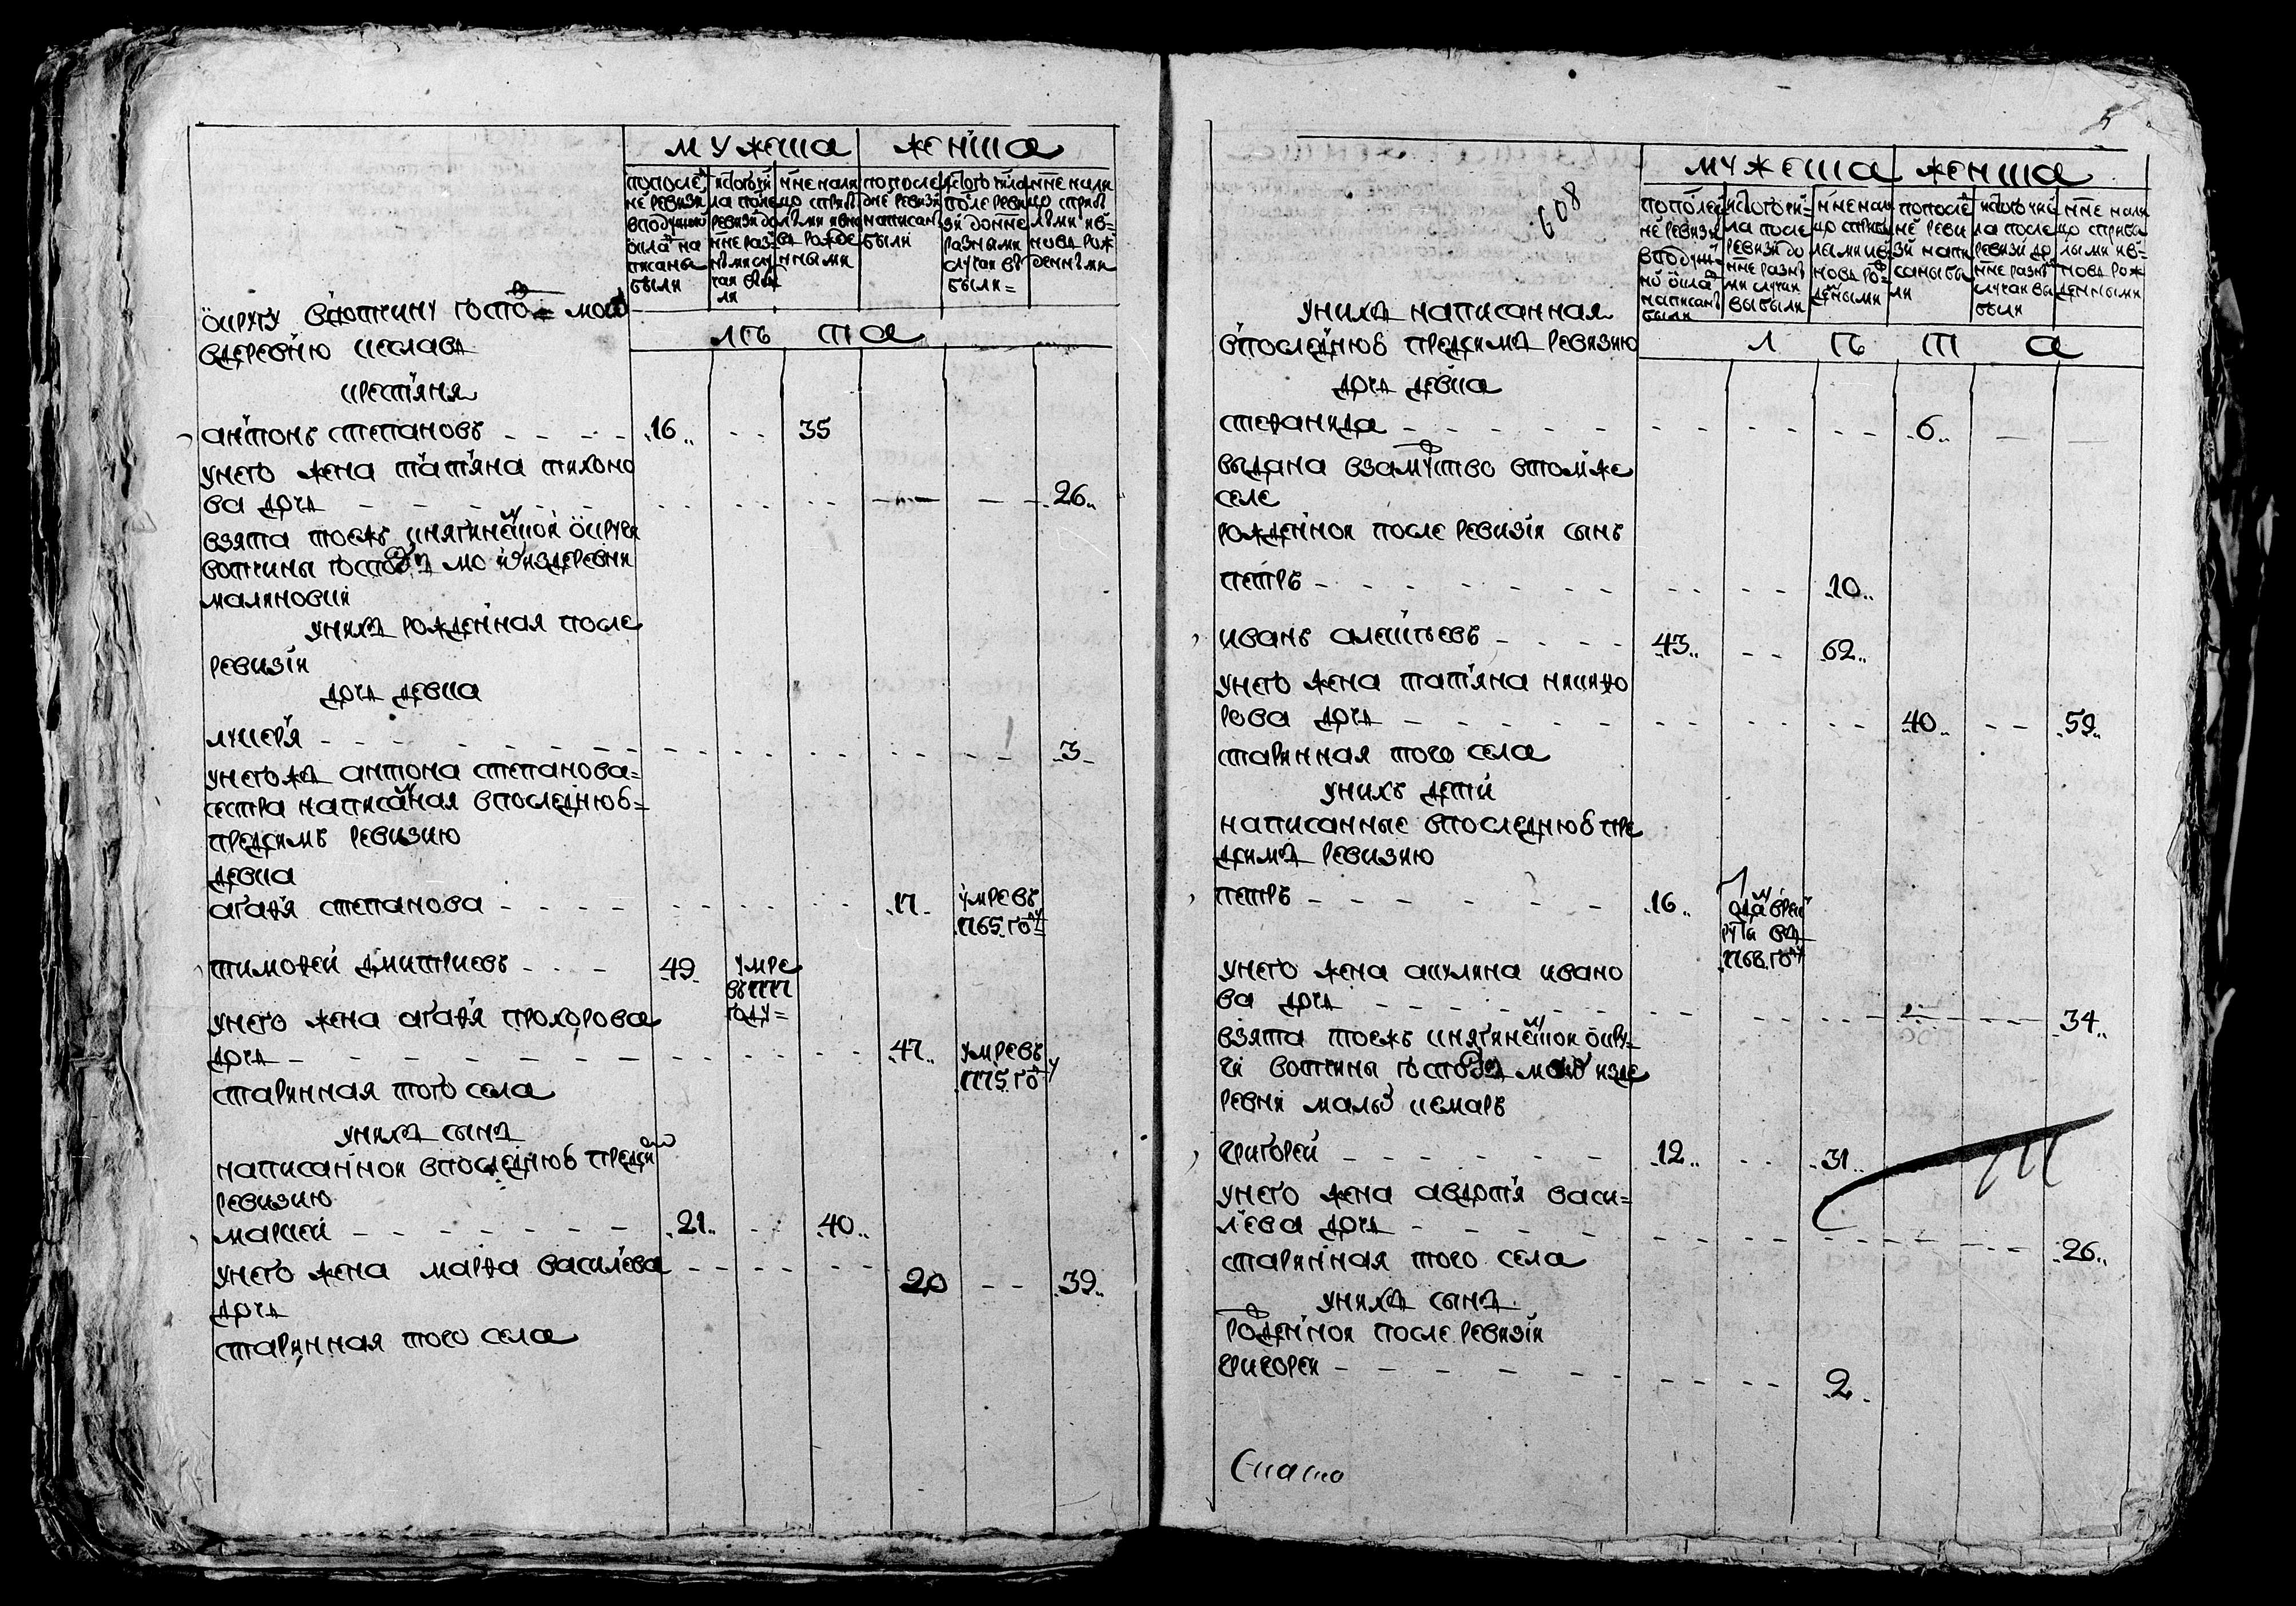 мужеска женска
по после
ней ревизи
в подушной
окладъ на
писаны
были
ис того чи
ла после
ревизи до
ныне раз
ными слу
чаи вы
ли
ныне нали
цо с прибы
лыми и внов
рожде
нными
по после
дне ревизи
написаны
были
ис того числа
после реви
зи до ныне
разными
случаи вы
были
ныне нали
цо с прибы
лыми и в
новь рож
денными
лѣта
округу вотчину госпо
в деревню
крестьяня
антонъ степановъ 16 35
у него жена татьяна тихоно
ва дочь 26
взята тоежъ княгиненской округи
вотчины из деревни
малиновки
у нихъ рожденная после
ревизіи
дочь девка
лукерья 3
у него жъ антона степанова
сестра написанная в последнюю
пред симъ ревизию
девка
агафья степанова 17 умре въ
1765 году
тимофей дмитриевъ 49 умре
въ 1777
году
у него жена агафья прохорова
дочь 47 умре въ
1775 году
старинная того села
у нихъ сынъ
написанной в последнюю пред сим
ревизию
маркей 21 40
у него жена марфа васильева 20 39
дочь
старинная того села
608
мужеска женска
по после
ней ревизи
в подуш
ной окла
написаны
были
ис того чи
ла после
ревизи до
ныне разны
ми случаи
выбыли
ныне нали
цо с прибы
лыми и в
новь ро
деными
по после
ней реви
зи напи
саны бы
ли
ис того чи
ла после
ревизи до
ныне разны
случаи вы
были
ныне нали
цо с прибы
лыми и в
новь рож
денными
лѣта
у нихъ написанная
в последнюю пред симъ ревизию
дочь девка
стефанида 6
выдана в замуство в томже
селе
рожденной после ревизіи сынъ
петръ 10
иванъ алексеевъ 43 62
у него жена татьяна никифо
рова дочь 40 59
старинная того села
у нихъ дети
написанные в последнюю пре
д симъ ревизию
петръ 16 отдан в рек
руты въ
1768 году
у него жена акулина ивано
ва дочь 34
взята тоежъ княгиненской окру
ги вотчины из де
ревни малой кемаръ
григорей 12 31
у него жена авдотья васи
льева дочь 26
старинная того села
у нихъ сынъ
рожденной после ревизіи
григорей 2